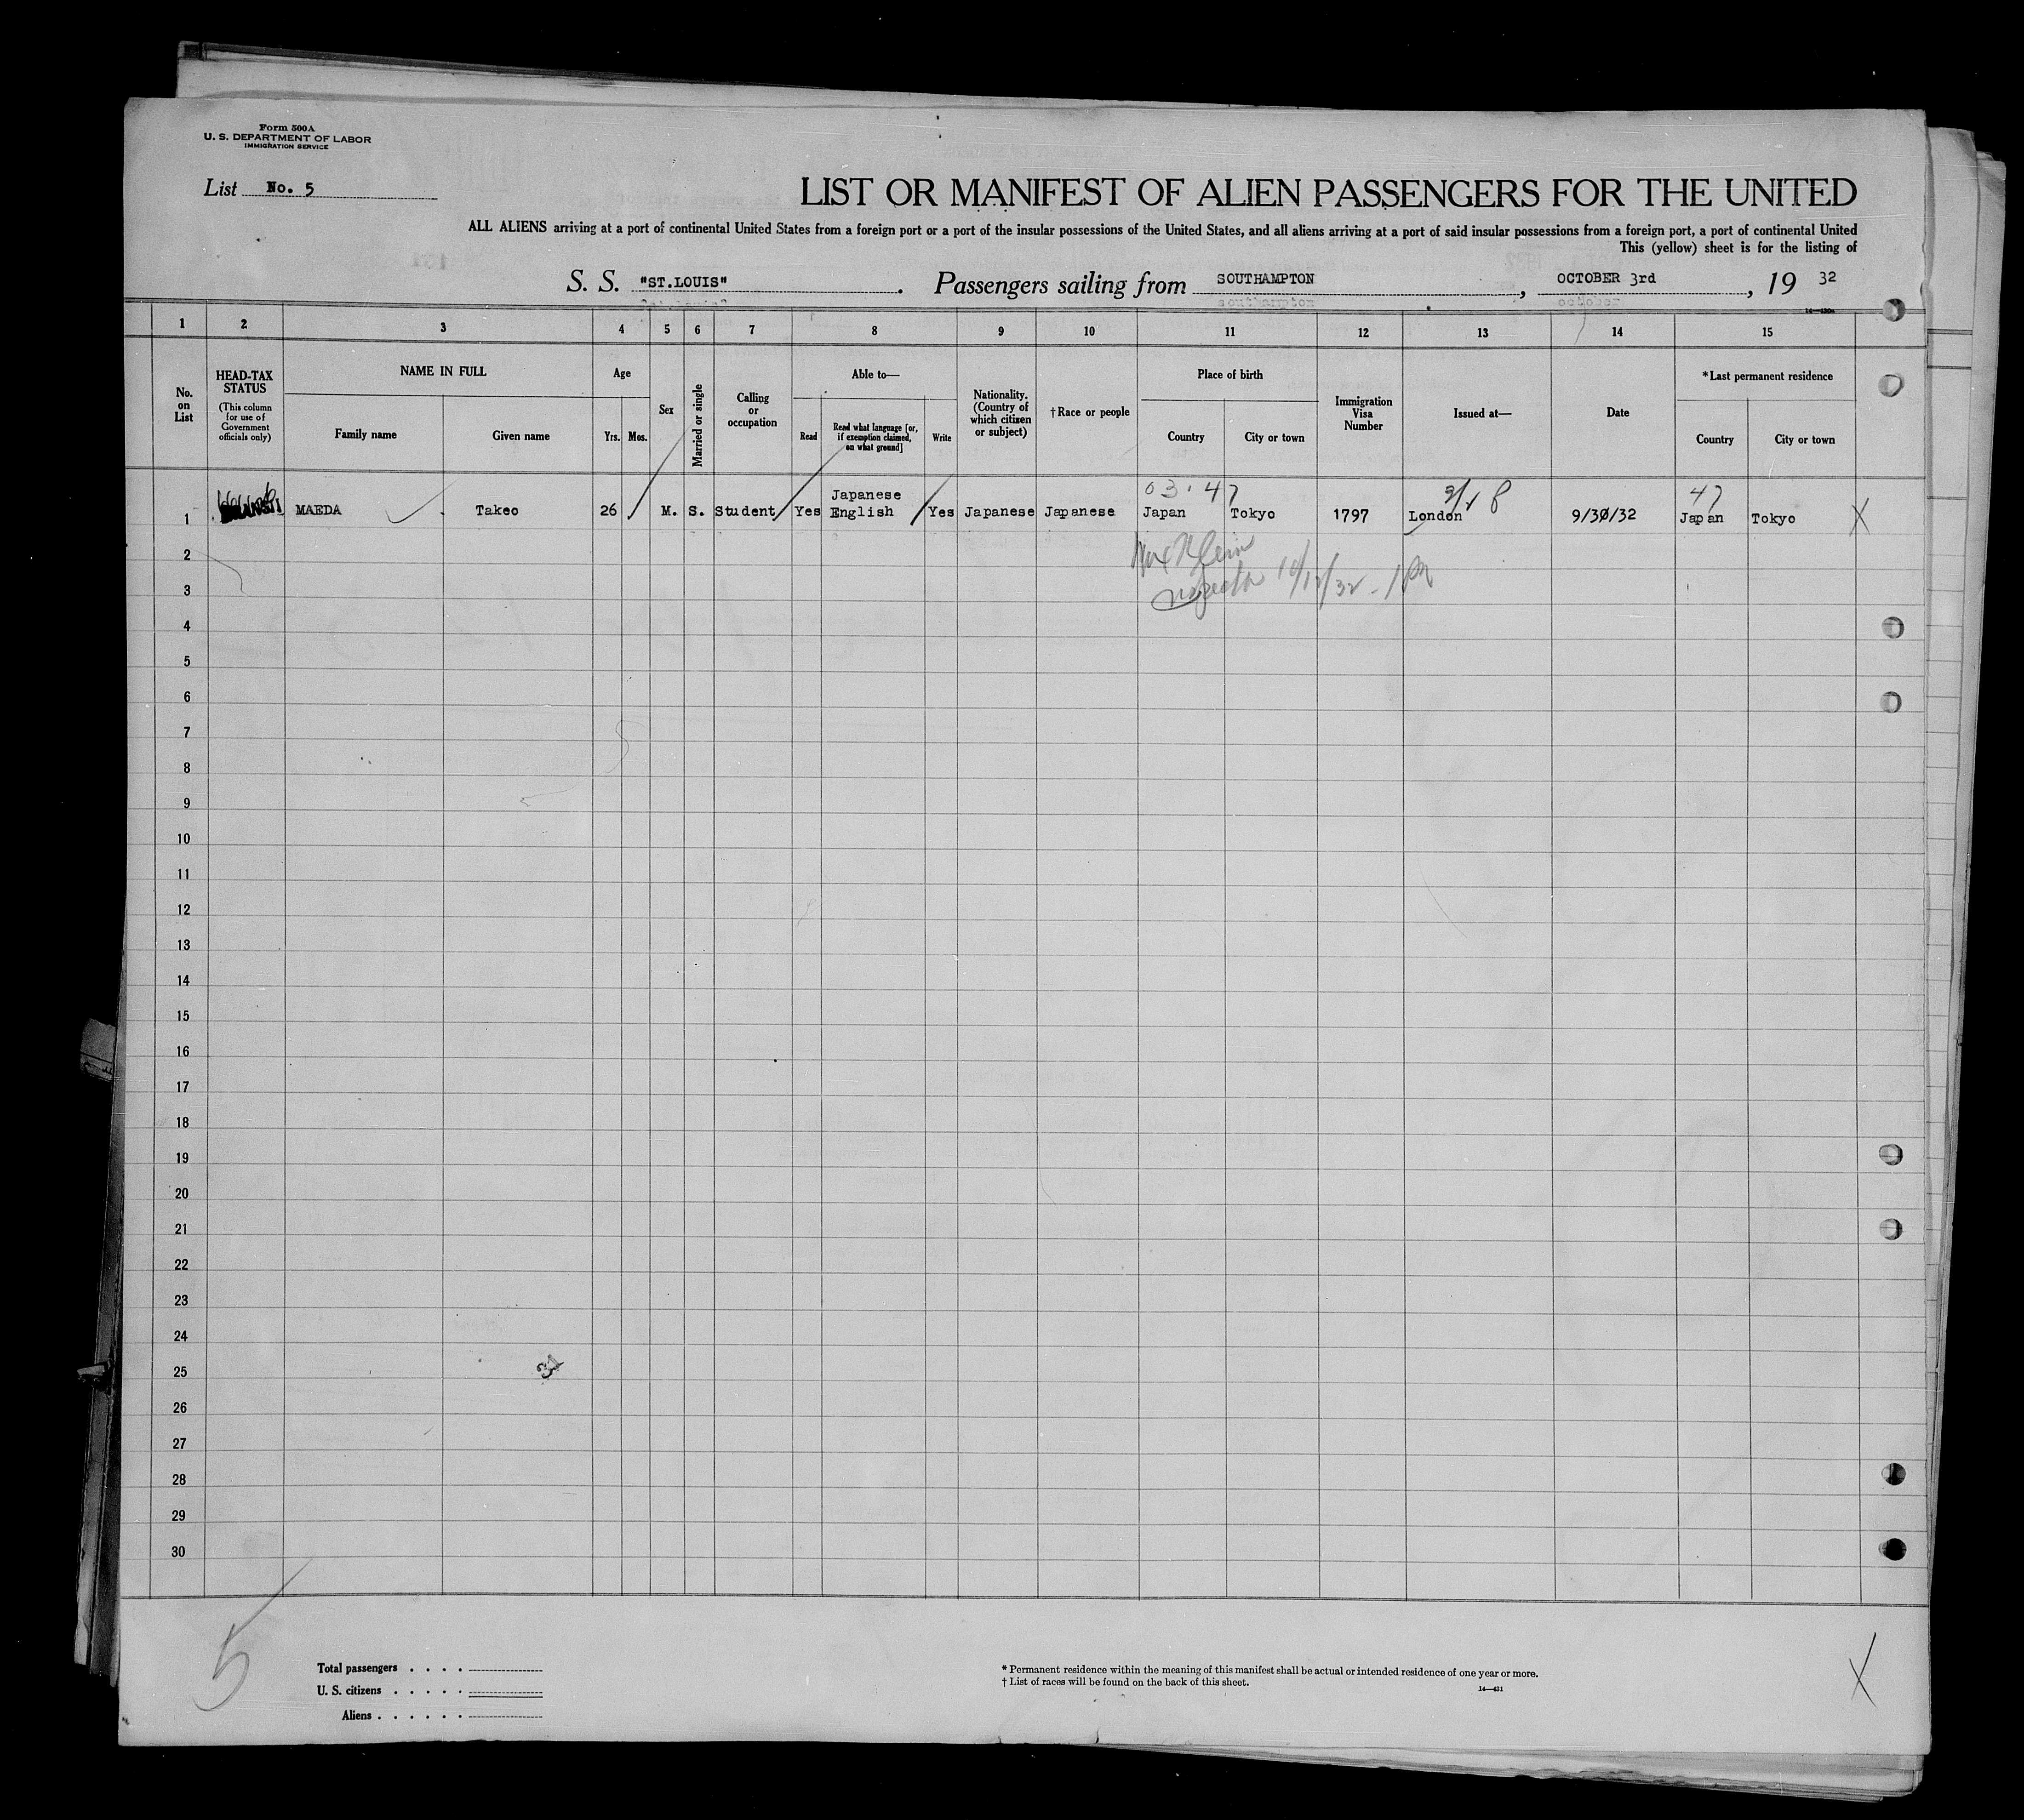 Form 500A
U. S. DEPARTMENT OF LABOR
IMMIGRATION SERVICE
List No. 5
LIST OR MANIFEST OF ALIEN PASSENGERS FOR THE UNITED
ALL ALIENS arriving at a port of continental United States from a foreign port or a port of the insular possessions of the United States, and all aliens arriving at a port of said insular possessions from a foreign port, a port of continental United
This (yellow) sheet is for the listing of
S. S. "ST.LOUIS". Passengers sailing from SOUTHAMPTON, OCTOBER 3rd, 19 32
1 2 3 4 5 6 7 8 9 10 11 12 13 14 15
No. on List
HEAD-TAX STATUS
(This column for use of Government officials only)
NAME IN FULL
Family name
Given name
Age
Yrs. Mos.
Sex
Married or single
Calling or occupation
Able to—
Read
Read what language [or, if exemption claimed, on what ground]
Write
Nationality. (Country of which citizen or subject)
†Race or people
Place of birth
Country
City or town
Immigration Visa Number
Issued at—
Date
*Last permanent residence
Country
City or town
03.47
47
Japanese
1 MAEDA Takeo 26 M. S. Student Yes English Yes Japanese Japanese Japan Tokyo 1797 London 9/30/32 Japan Tokyo X
10/12/32
2
3
4
5
6
7
8
9
10
11
12
13
14
15
16
17
18
19
20
21
22
23
24
25
26
27
28
29
30
5
Total passengers . . . .
U. S. citizens . . . . .
Aliens . . . . . .
* Permanent residence within the meaning of this manifest shall be actual or intended residence of one year or more.
† List of races will be found on the back of this sheet.
14—431
X